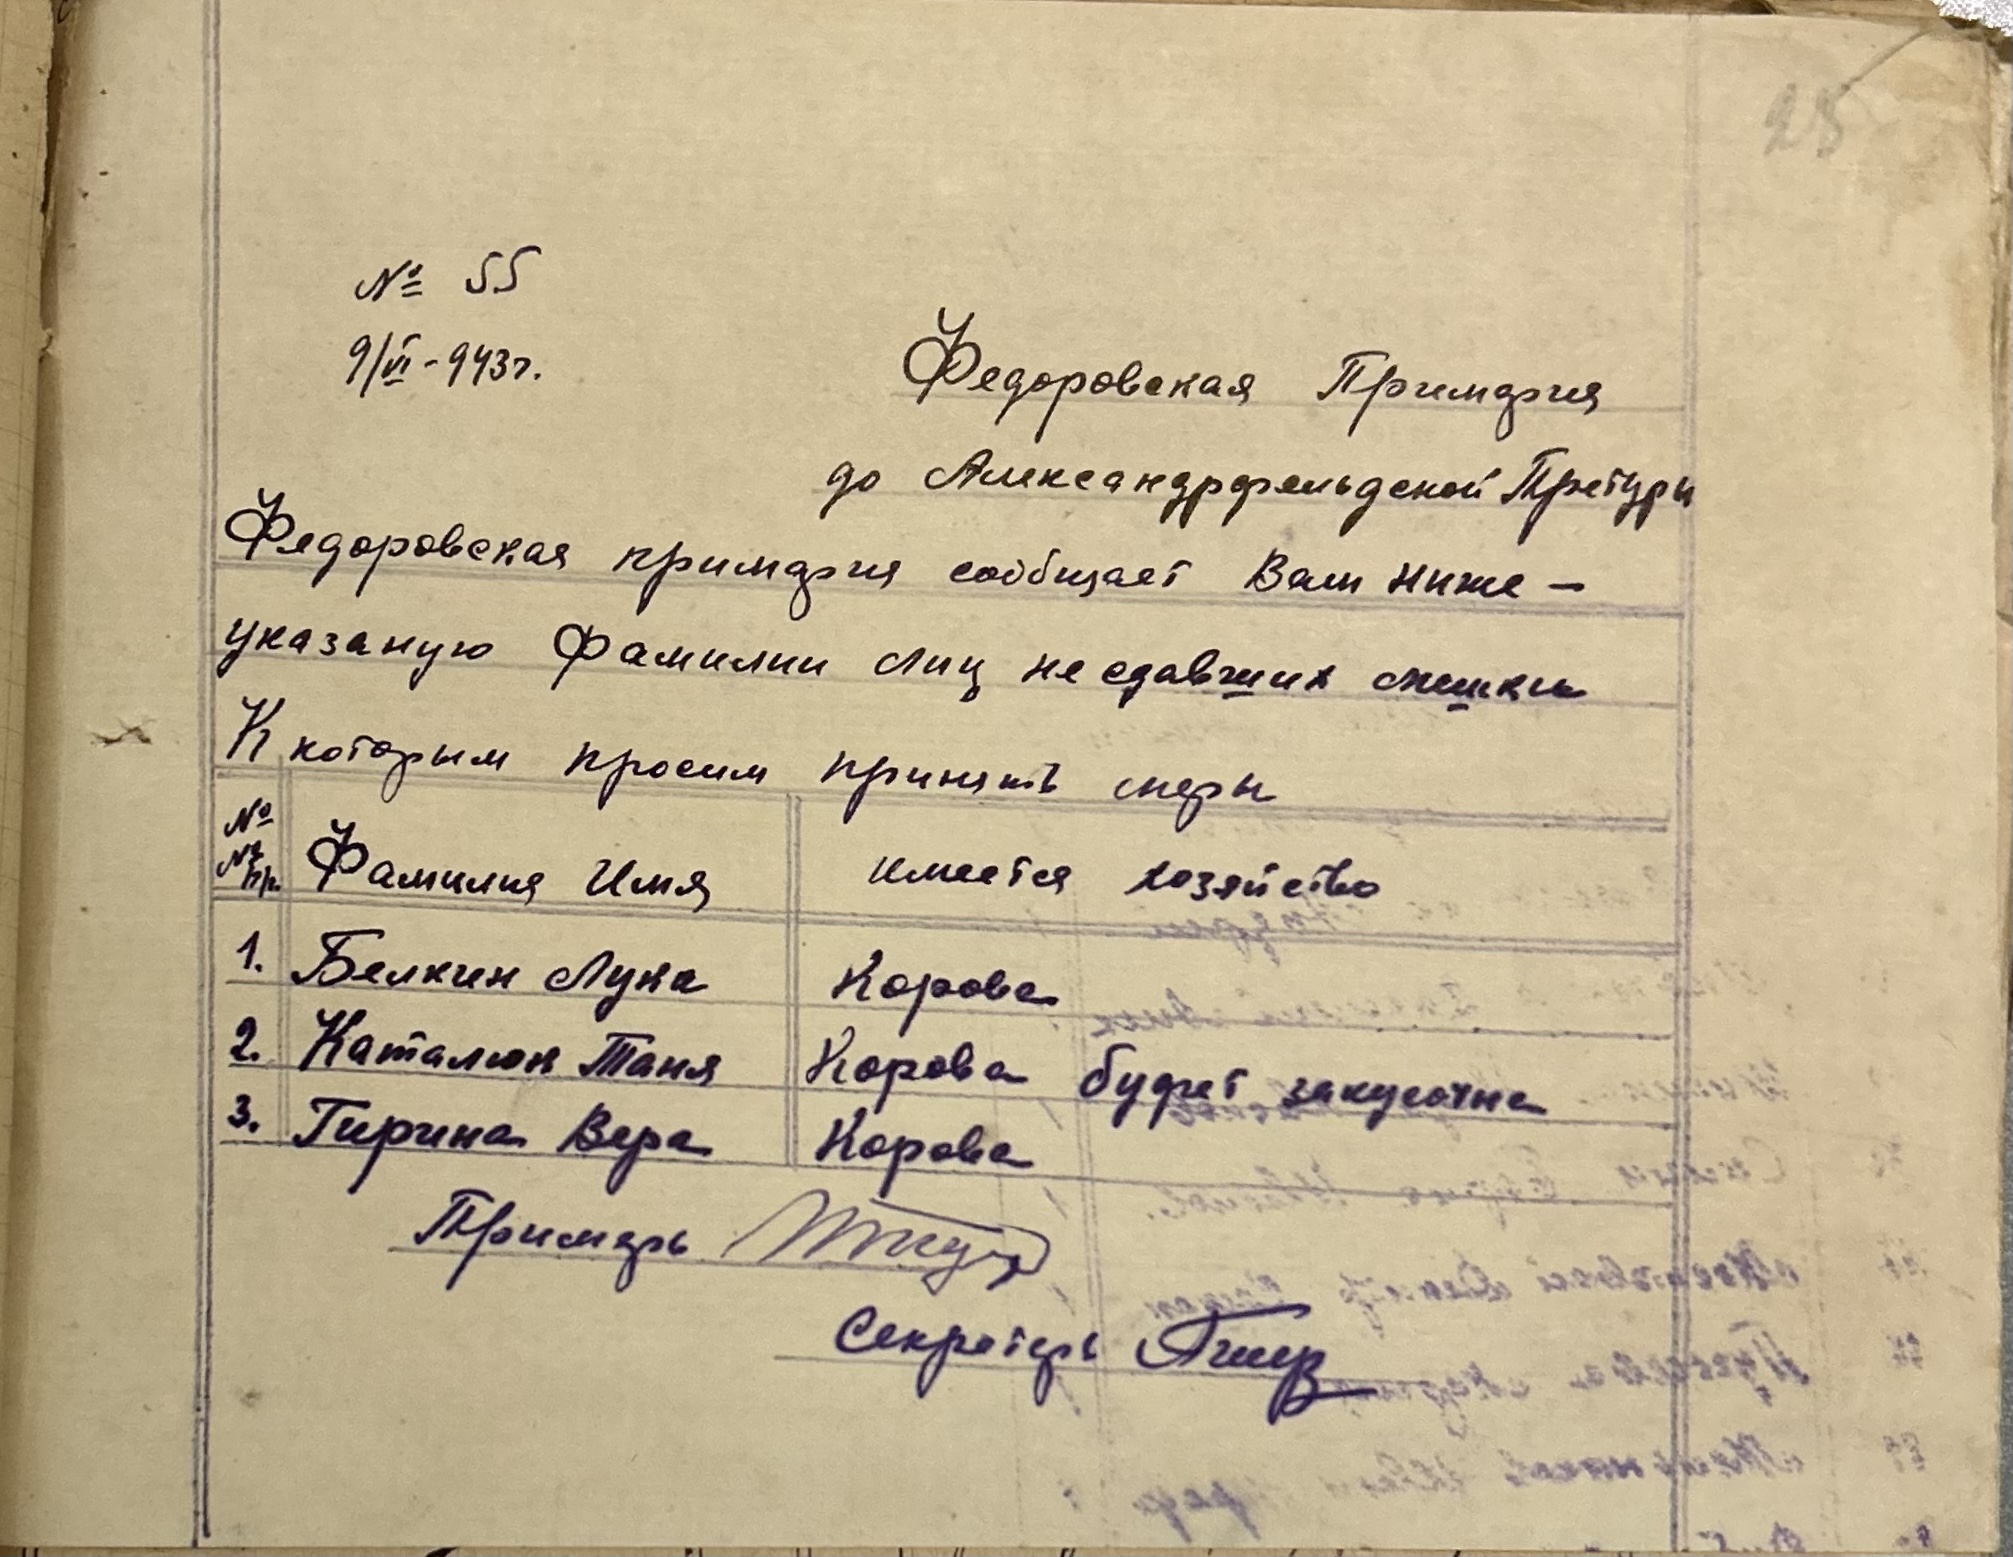 25
№ 55
9/VI-943г.
Федоровская Примария
до Александрфельдской Претуры
Федоровская примария сообщает Вам ниже-
указаную Фамилии лиц не сдавших мешки
К которым просим принять меры
№
№ пр. Фамилия Имя имеется хозяйство
1. Белкин Лука Корова
2. Каталюк Таня Корова будет
3. Гирина Вера Корова
Примарь
Секретарь